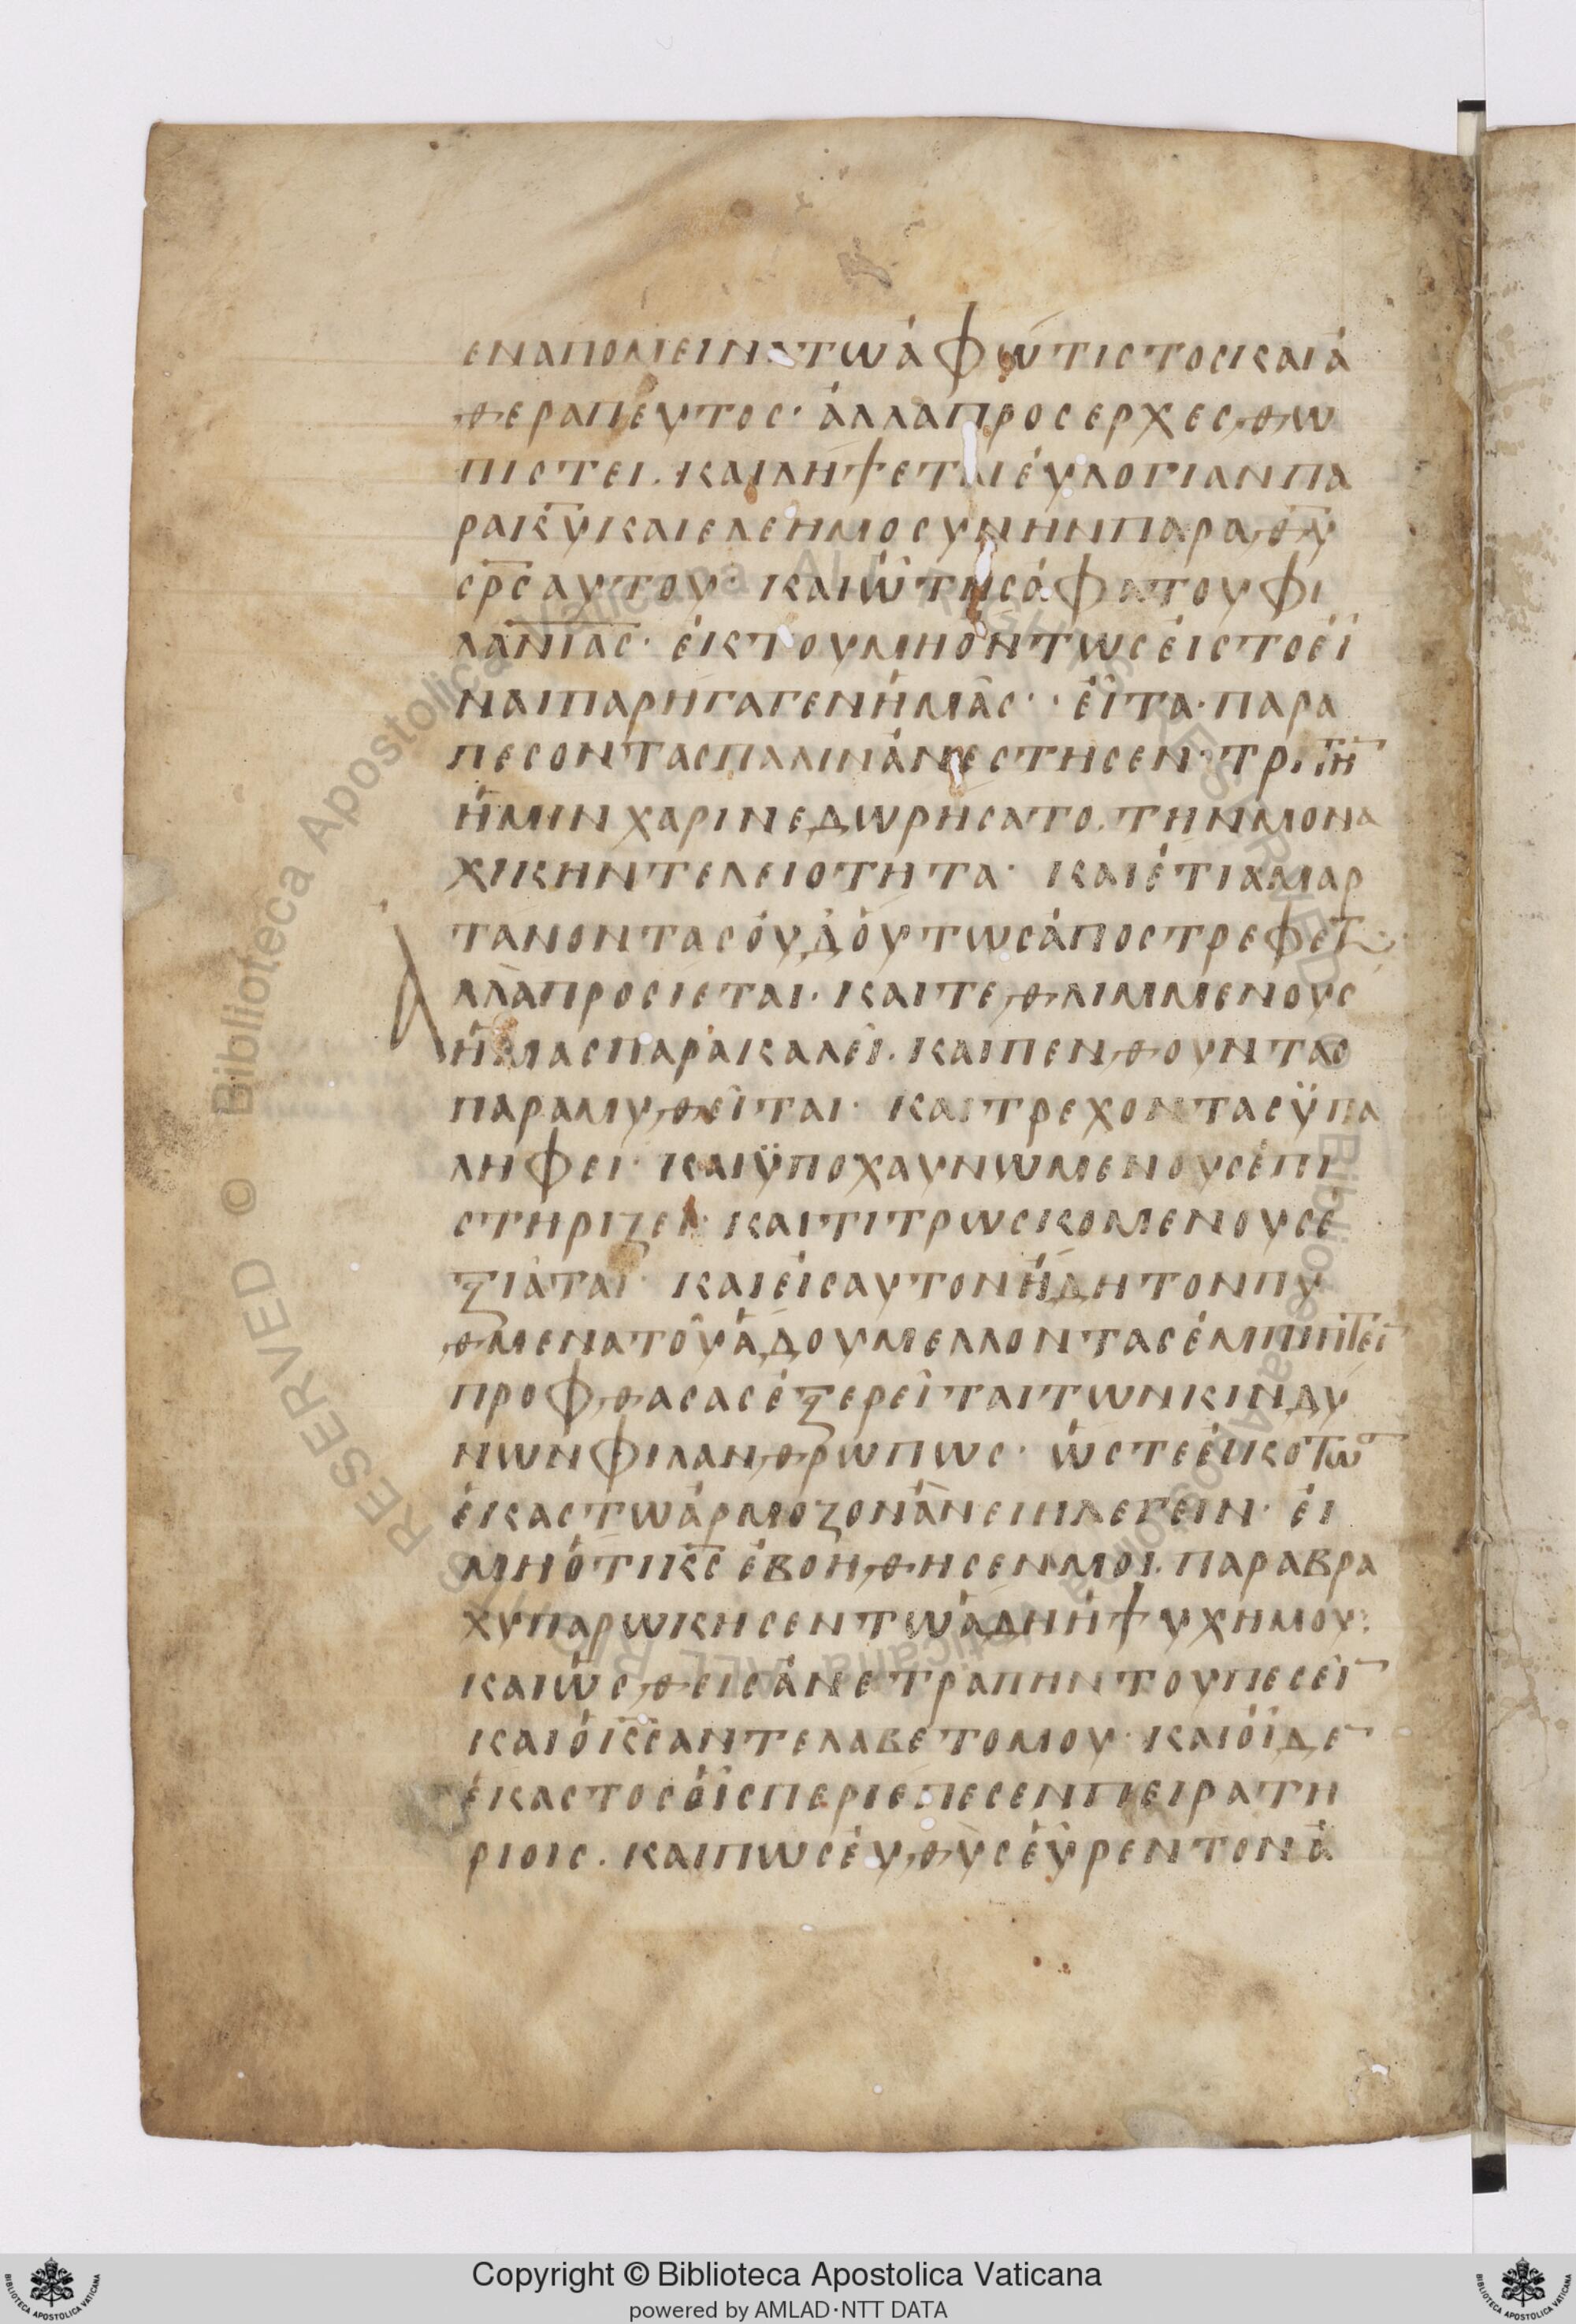 ΕΝΑΠΟΜΕΙΝΑΤΩἀΦΩΤΙΣΤΟΣΚΑΙἀ
ΘΕΡΑΠΕΥΤΟΣ· ἀΛΛΑΠΡΟΣΕΡΧΕΣΘΩ
ΠΙΣΤΕΙ. ΚΑΙΛΗΨΕΤΑΙἐΥΛΟΓΙΑΝΠΑ
ΡΑΚ̅Υ̅ΚΑΙΕΛΕΗΜΟΣΥΝΗΝΠΑΡΑΘ̅Υ̅
Σ̅Ρ̅Σ̅ΑΥΤΟΥ· ΚΑΙὢΤΗΣἀΦΑΤΟΥΦΙ
ΛΑ̅Ν̅Ι̅Α̅Σ̅· ἐΚΤΟΥΜΗὄΝΤΩΣἐΙΣΤΟἐΙ
ΝΑΙΠΑΡΗΓΑΓΕΝἡΜΑ͂Σ·· ἐΙ͂ΤΑ·ΠΑΡΑ
ΠΕΣΟΝΤΑΣΠΑΛΙΝἀΝΕΣΤΗΣΕΝ·ΤΡΙΤΗ̅
ἡΜΙΝΧΑΡΙΝΕΔΩΡΗΣΑΤΟ. ΤΗΝΜΟΝΑ
ΧΙΚΗΝΤΕΛΕΙΟΤΗΤΑ· ΚΑΙἔΤΙΑΜΑΡ
ΤΑΝΟΝΤΑΣὀΥΔὀΥΤΩΣἀΠΟΣΤΡΕΦΕΤ
ΑΛΛΑΠΡΟΣΙΕΤΑΙ· ΚΑΙΤΕΘΛΙΜΜΕΝΟΥΣ
ἡΜΑΣΠΑΡΑΚΑΛΕΙ͂. ΚΑΙΠΕΝΘΟΥΝΤΑΣ
ΠΑΡΑΜΥΘΕΙ͂ΤΑΙ· ΚΑΙΤΡΕΧΟΝΤΑΣΫΠΑ
ΛΗΦΕΙ· ΚΑΙΫΠΟΧΑΥΝΩΜΕΝΟΥΣἐΠΙ
ΣΤΗΡΙΖΕΙ· ΚΑΙΤΙΤΡΩΣΚΟΜΕΝΟΥΣἐ
ΞΙΑ͂ΤΑΙ· ΚΑΙἐΙΣΑΥΤΟΝἤΔΗΤΟΝΠΥ
ΘΜΕΝΑΤΟΥ͂ἅΔΟΥΜΕΛΛΟΝΤΑΣἐΜΠΙΠΤΕΙ̅
ΠΡΟΦΘΑΣΑΣἐΞΕΡΕΙ͂ΤΑΙΤΩΝΚΙΝΔΥ
ΝΩΝΦΙΛΑΝΘΡΩΠΩΣ· ὥΣΤΕἐΙΚΟΤΩΣ
ἑΚΑΣΤΩἁΡΜΟΖΟΝἂΝΕΙΗΛΕΓΕΙΝ· ἐΙ
ΜΗὅΤΙΚ̅Σ̅ἐΒΟΗΘΗΣΕΝΜΟΙ. ΠΑΡΑΒΡΑ
ΧΥΠΑΡΩΚΗΣΕΝΤΩἅΔΗἡΨΥΧΗΜΟΥ:
ΚΑΙὠΣΘΕΙΣἀΝΕΤΡΑΠΗΝΤΟΥΠΕΣΕΙ̅
ΚΑΙὁΚ̅Σ̅ΑΝΤΕΛΑΒΕΤΟΜΟΥ· ΚΑΙὀΙ͂ΔΕ̅
ἕΚΑΣΤΟΣὁΙ͂ΣΠΕΡΙἐΠΕΣΕΝΠΕΙΡΑΤΗ
ΡΙΟΙΣ. ΚΑΙΠΩΣἐΥΘῪΣἐΥ͂ΡΕΝΤΟΝἀ
Copyright © Biblioteca Apostolica Vaticana
powered by AMLAD·NTT DATA